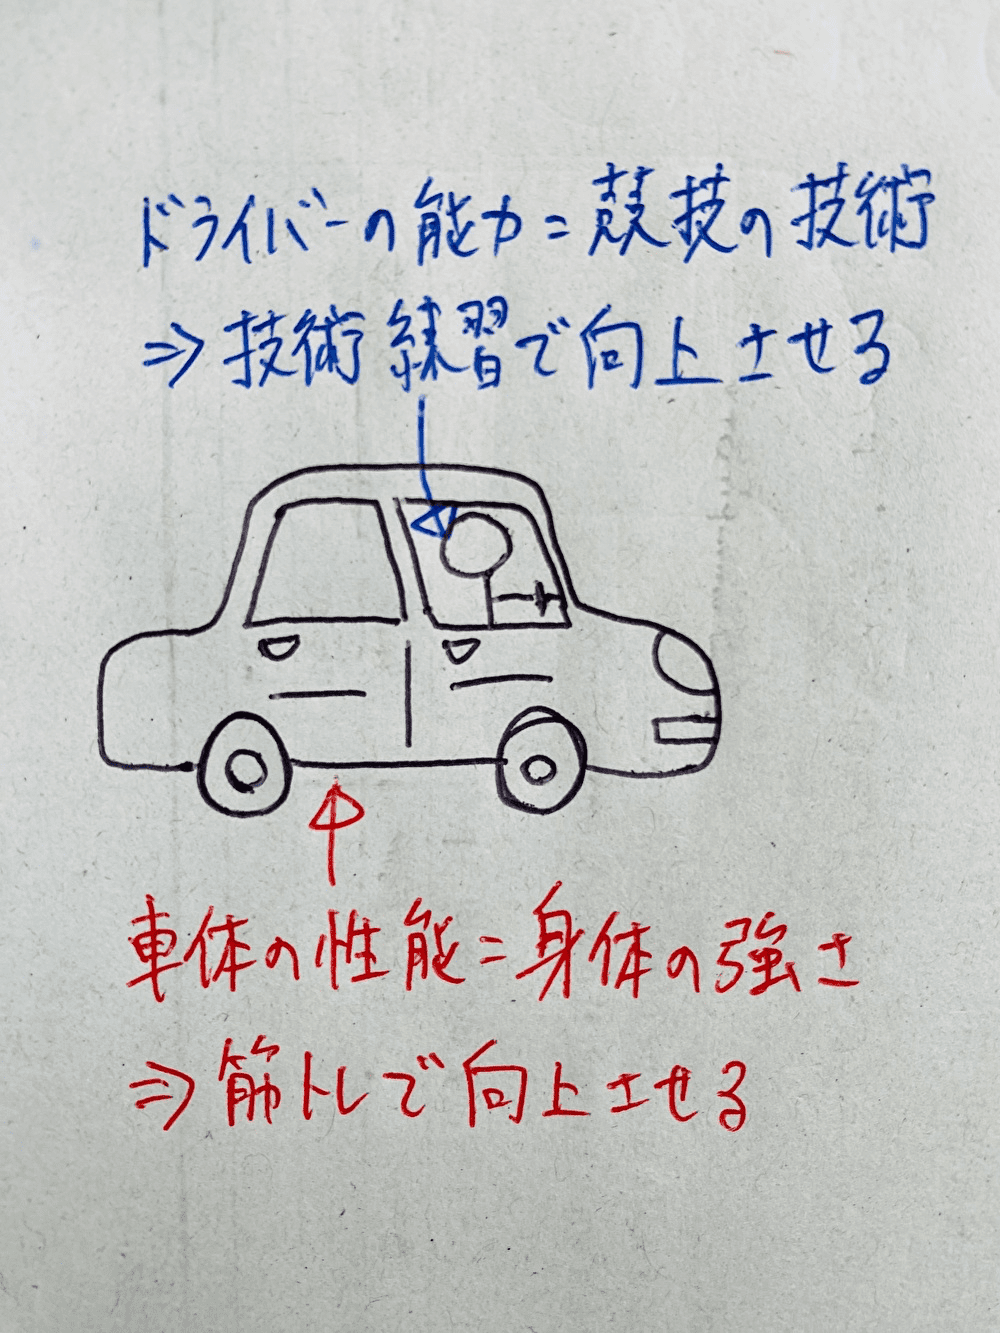 ドライバーの能力=競技の技術
⇒技術練習で向上させる
車体の性能=身体の強さ
⇒筋トレで向上させる